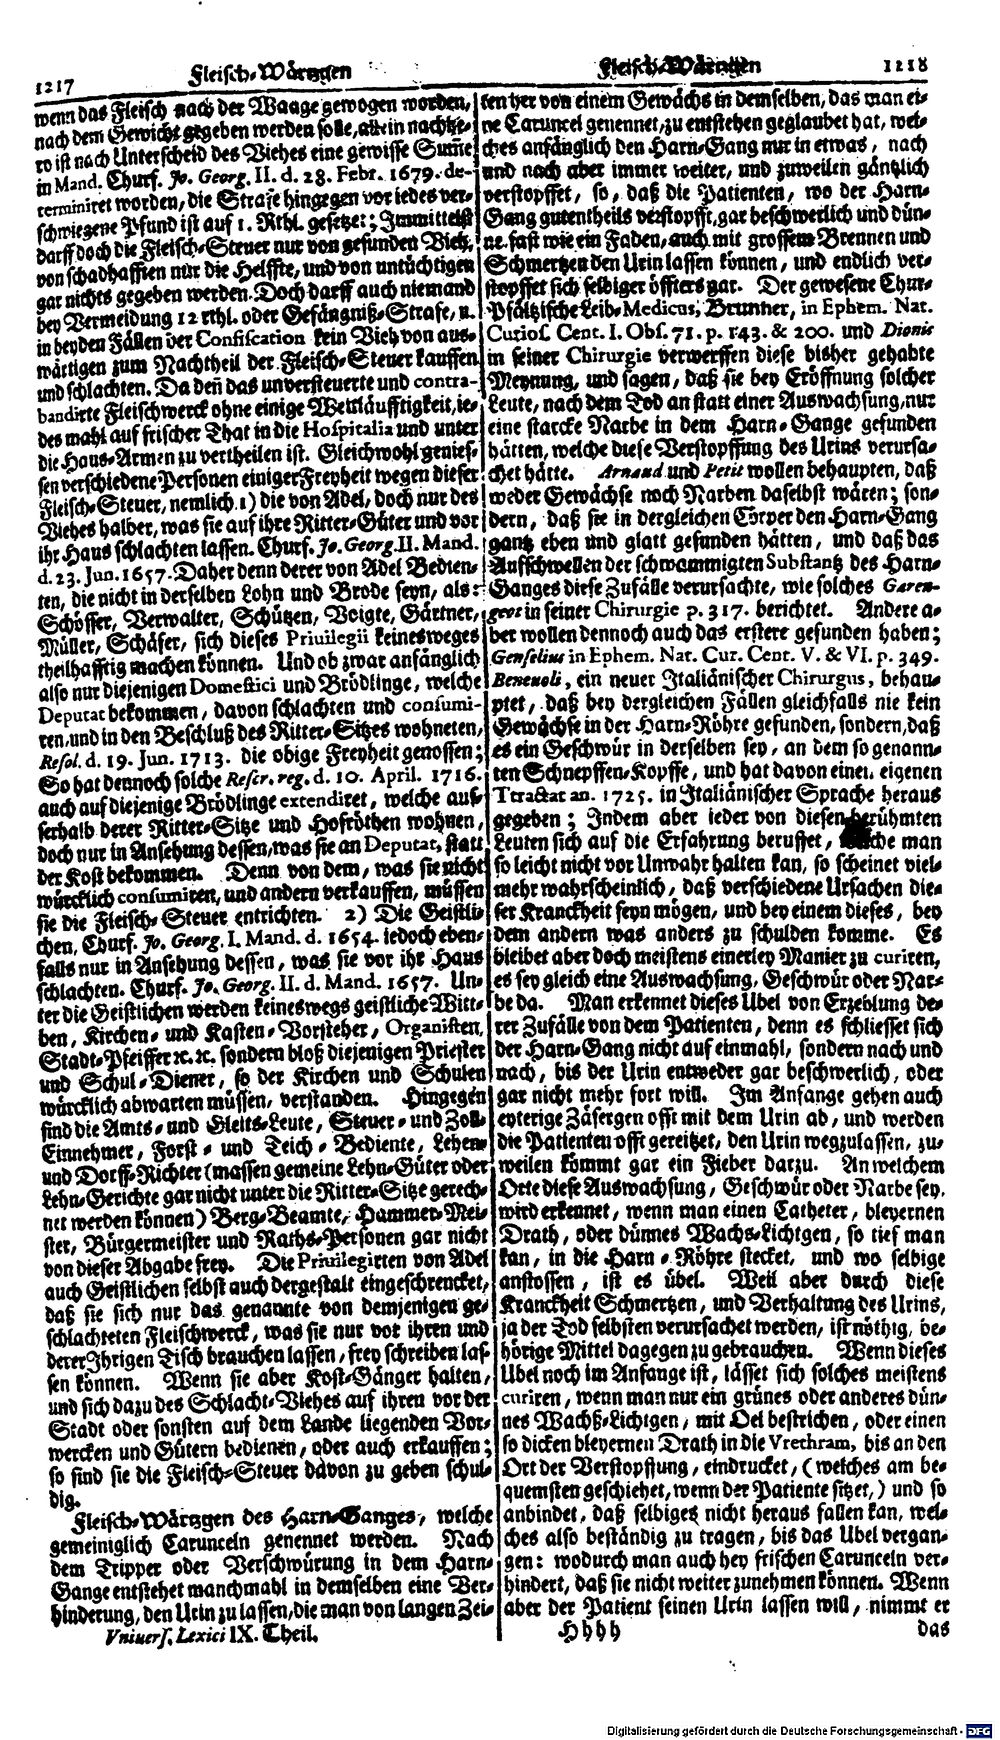 1217 Fleisch-Wärtzgen
wenn das Fleisch nach der Waage gewogen worden,
nach dem Gewicht gegeben werden solle, allein nachhe-
ro ist nach Unterscheid des Viehes eine gewisse Sum̃e
in Mand. Churf. Jo. Georg. II. d. 28. Febr. 1679. de-
terminiret worden, die Strafe hingegen vor iedes ver-
schwiegene Pfund ist auf 1. Rthl. gesetzet; Immittelst
darff doch die Fleisch-Steuer nur von gesunden Vieh,
von schadhafften nur die Helffte, und von untüchtigen
gar nichts gegeben werden. Doch darff auch niemand
bey Vermeidung 12 rthl. oder Gefängniß-Strafe, u.
in beyden Fällen der Confiscation kein Vieh von aus-
wärtigen zum Nachtheil der Fleisch-Steuer kauffen
und schlachten. Da den̄ das unversteuerte und contra-
bandirte Fleischwerck ohne einige Weitläufftigkeit, ie-
des mahl auf frischer That in die Hospitalia und unter
die Haus-Armen zu vertheilen ist. Gleichwohl genies-
sen verschiedene Personen einiger Freyheit wegen dieser
Fleisch-Steuer, nemlich 1) die von Adel, doch nur des
Viehes halber, was sie auf ihre Ritter-Güter und vor
ihr Haus schlachten lassen. Churf. Jo. Georg. II. Mand.
d. 23. Jun. 1657. Daher denn derer von Adel Bedien-
ten, die nicht in derselben Lohn und Brode seyn, als:
Schösser, Verwalter, Schützen, Voigte, Gärtner,
Müller, Schäfer, sich dieses Priuilegii keinesweges
theilhafftig machen können. Und ob zwar anfänglich
also nur diejenigen Domestici und Brödlinge, welche
Deputat bekommen, davon schlachten und consumi-
ren, und in den Beschluß des Ritter-Sitzes wohneten,
Resol. d. 19. Jun. 1713. die obige Freyheit genossen;
So hat dennoch solche Rescr. reg. d. 10. April. 1716.
auch auf diejenige Brödlinge extendiret, welche aus-
serhalb derer Ritter-Sitze und Hofröthen wohnen,
doch nur in Ansehung dessen, was sie an Deputat, statt
der Kost bekommen. Denn von dem, was sie nicht
würcklich consumiren, und andern verkauffen, müssen
sie die Fleisch-Steuer entrichten. 2) Die Geistli-
chen, Churf. Jo. Georg. I. Mand. d. 1654. iedoch eben-
falls nur in Ansehung dessen, was sie vor ihr Haus
schlachten. Churf. Jo. Georg. II. d. Mand. 1657. Un-
ter die Geistlichen werden keineswegs geistliche Witt-
ben, Kirchen- und Kasten-Vorsteher, Organisten,
Stadt-Pfeiffer ꝛc. ꝛc. sondern bloß diejenigen Priester
und Schul-Diener, so der Kirchen und Schulen
würcklich abwarten müssen, verstanden. Hingegen
sind die Amts- und Gleits-Leute, Steuer- und Zoll-
Einnehmer, Forst- und Teich-Bediente, Lehen-
und Dorff-Richter (massen gemeine Lehn-Güter oder
Lehn-Gerichte gar nicht unter die Ritter-Sitze gerech-
net werden können) Berg-Beamte, Hammer-Mei-
ster, Bürgermeister und Raths-Personen gar nicht
von dieser Abgabe frey. Die Priuilegirten von Adel
auch Geistlichen selbst auch dergestalt eingeschrencket,
daß sie sich nur das genannte von demjenigen ge-
schlachteten Fleischwerck, was sie nur vor ihren und
derer Ihrigen Tisch brauchen lassen, frey schreiben las-
sen können. Wenn sie aber Kost-Gänger halten,
und sich dazu des Schlacht-Viehes auf ihren vor der
Stadt oder sonsten auf dem Lande liegenden Vor-
wercken und Gütern bedienen, oder auch erkauffen;
so sind sie die Fleisch-Steuer davon zu geben schul-
dig.
Fleisch-Wärtzgen des Harn-Ganges, welche
gemeiniglich Carunceln genennet werden. Nach
dem Tripper oder Verschwürung in dem Harn-
Gange entstehet manchmahl in demselben eine Ver-
hinderung, den Urin zu lassen, die man von langen Zei-
Vniuers. Lexici IX. Theil.
Fleisch-Wärtzgen 1218
ten her von einem Gewächs in demselben, das man ei-
ne Caruncel genennet, zu entstehen geglaubet hat, wel-
ches anfänglich den Harn-Gang nur in etwas, nach
und nach aber immer weiter, und zuweilen gäntzlich
verstopffet, so, daß die Patienten, wo der Harn-
Gang gutentheils verstopfft, gar beschwerlich und dün-
ne fast wie ein Faden, auch mit grossem Brennen und
Schmertzen den Urin lassen können, und endlich ver-
stopffet sich selbiger öffters gar. Der gewesene Chur-
Pfältzische Leib-Medicus, Brunner, in Ephem. Nat.
Curios. Cent. I. Obs. 71. p. 143. & 200. und Dionis
in seiner Chirurgie verwerffen diese bisher gehabte
Meynung, und sagen, daß sie bey Eröffnung solcher
Leute, nach dem Tod an statt einer Auswachsung, nur
eine starcke Narbe in dem Harn-Gange gefunden
hätten, welche diese Verstopffung des Urins verursa-
chet hätte. Arnaud und Petit wollen behaupten, daß
weder Gewächse noch Narben daselbst wären; son-
dern, daß sie in dergleichen Cörper den Harn-Gang
gantz eben und glatt gefunden hätten, und daß das
Aufschwellen der schwammigten Substantz des Harn-
Ganges diese Zufälle verursachte, wie solches Garen-
geot in seiner Chirurgie p. 317. berichtet. Andere a-
ber wollen dennoch auch das erstere gefunden haben;
Genselius in Ephem. Nat. Cur. Cent. V. & VI. p. 349.
Beneuoli, ein neuer Italiänischer Chirurgus, behau-
ptet, daß bey dergleichen Fällen gleichfalls nie kein
Gewächse in der Harn-Röhre gefunden, sondern, daß
es ein Geschwür in derselben sey, an dem so genann-
ten Schnepffen-Kopffe, und hat davon einen eigenen
Ttractat an. 1725. in Italiänischer Sprache heraus
gegeben; Indem aber ieder von diesen berühmten
Leuten sich auf die Erfahrung beruffet, che man
so leicht nicht vor Unwahr halten kan, so scheinet viel-
mehr wahrscheinlich, daß verschiedene Ursachen die-
ser Kranckheit seyn mögen, und bey einem dieses, bey
dem andern was anders zu schulden komme. Es
bleibet aber doch meistens einerley Manier zu curiren,
es sey gleich eine Auswachsung, Geschwür oder Nar-
be da. Man erkennet dieses Ubel von Erzehlung de-
rer Zufälle von dem Patienten, denn es schliesset sich
der Harn-Gang nicht auf einmahl, sondern nach und
nach, bis der Urin entweder gar beschwerlich, oder
gar nicht mehr fort will. Im Anfange gehen auch
eyterige Zäsergen offt mit dem Urin ab, und werden
die Patienten offt gereitzet, den Urin wegzulassen, zu-
weilen kömmt gar ein Fieber darzu. An welchem
Orte diese Auswachsung, Geschwür oder Narbe sey,
wird erkennet, wenn man einen Catheter, bleyernen
Drath, oder dünnes Wachs-Lichtgen, so tief man
kan, in die Harn-Röhre stecket, und wo selbige
anstossen, ist es übel. Weil aber durch diese
Kranckheit Schmertzen, und Verhaltung des Urins,
ja der Tod selbsten verursachet werden, ist nöthig, be-
hörige Mittel dagegen zu gebrauchen. Wenn dieses
Ubel noch im Anfange ist, lässet sich solches meistens
curiren, wenn man nur ein grünes oder anderes dün-
nes Wachß-Lichtgen, mit Oel bestrichen, oder einen
so dicken bleyernen Drath in die Vrethram, bis an den
Ort der Verstopffung, eindrucket, (welches am be-
quemsten geschiehet, wenn der Patiente sitzet,) und so
anbindet, daß selbiges nicht heraus fallen kan, wel-
ches also beständig zu tragen, bis das Ubel vergan-
gen: wodurch man auch bey frischen Carunceln ver-
hindert, daß sie nicht weiter zunehmen können. Wenn
aber der Patient seinen Urin lassen will, nimmt er
Hhhh das
Digitalisierung gefördert durch die Deutsche Forschungsgemeinschaft - DFG